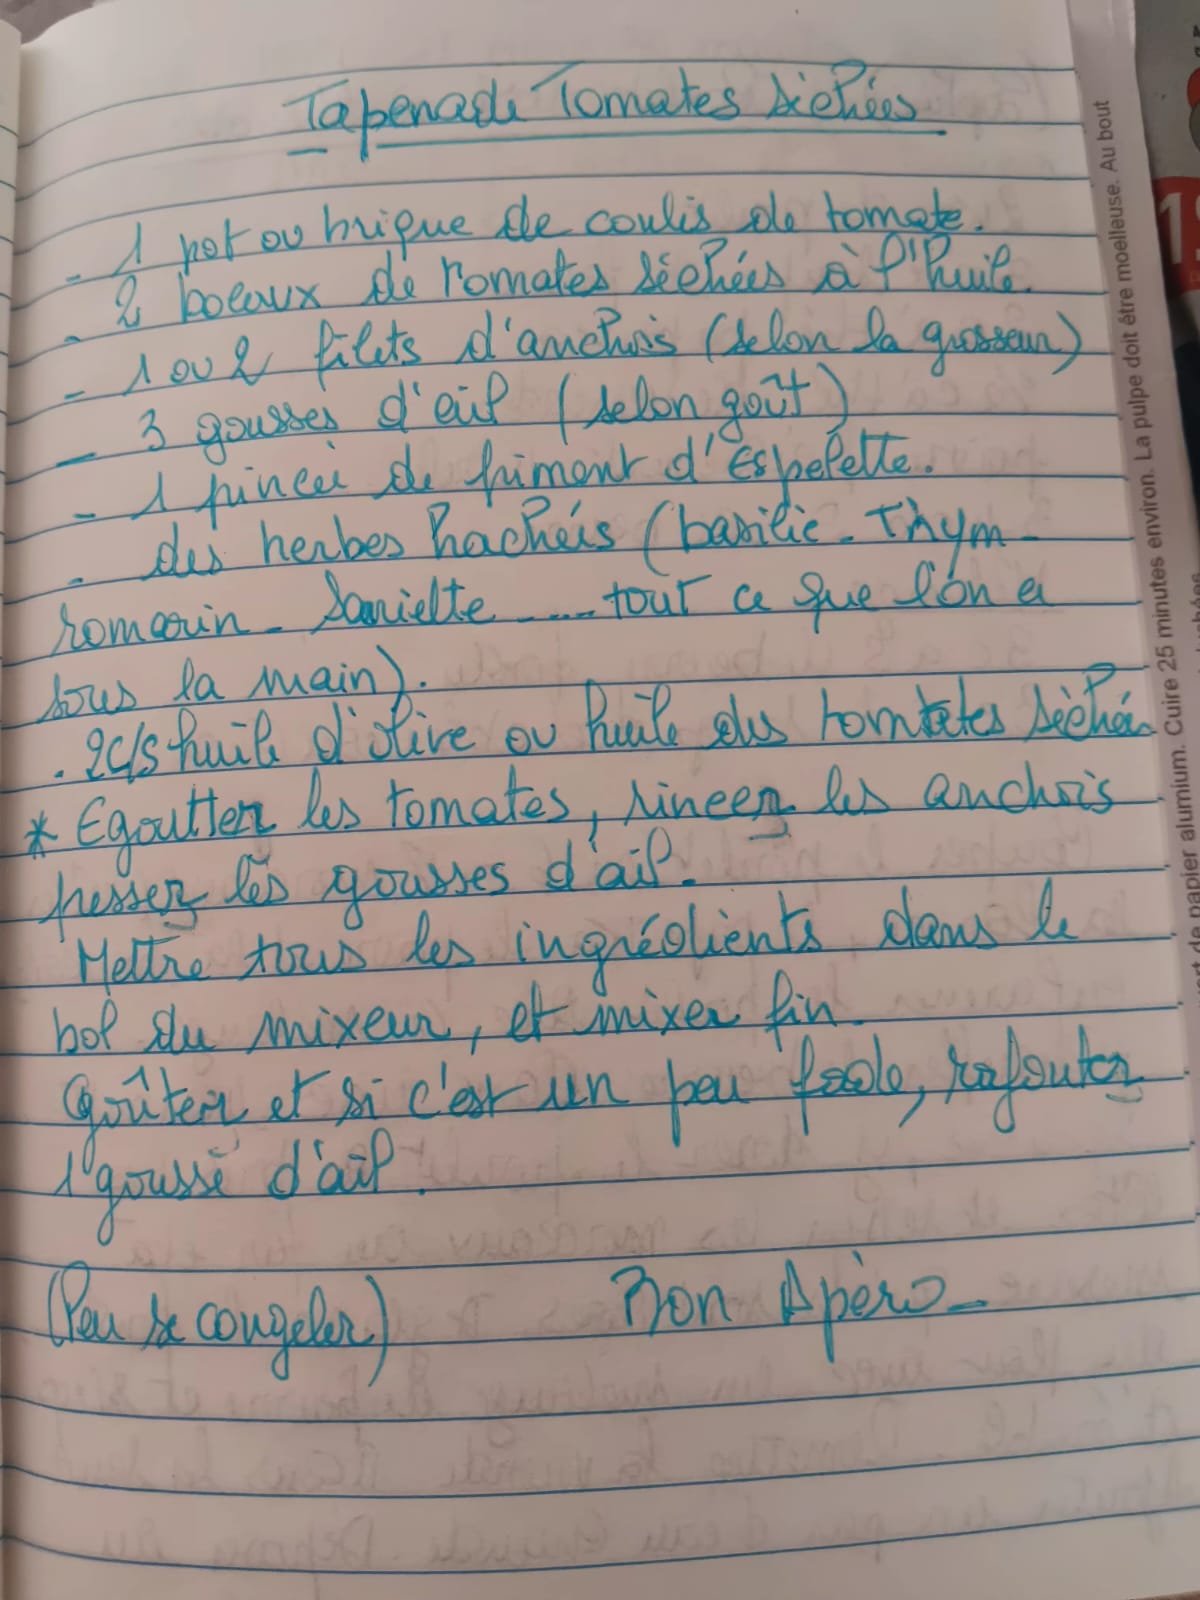 Tapenade Tomates séchées
- 1 pot ou brique de coulis de tomate.
- 2 bocaux de tomates séchées à l'huile.
- 1 ou 2 filets d'anchois (selon la grosseur)
- 3 gousses d'ail (selon goût)
- 1 pincée de piment d'Espelette.
- des herbes hachées (basilic - Thym -
romarin - Sariette ---- tout ce que l'on a
sous la main).
. 2c/s huile d'olive ou huile des tomates séchées
* Egoutter les tomates, rincer les anchois
presser les gousses d'ail.
Mettre tous les ingrédients dans le
bol du mixeur, et mixer fin.
Goûter et si c'est un peu fade, rajouter
1 gousse d'ail.
(Peu se congeler)
Bon Apèro -
Au bout
La pulpe doit être moelleuse.
Cuire 25 minutes environ.
de papier alumium.